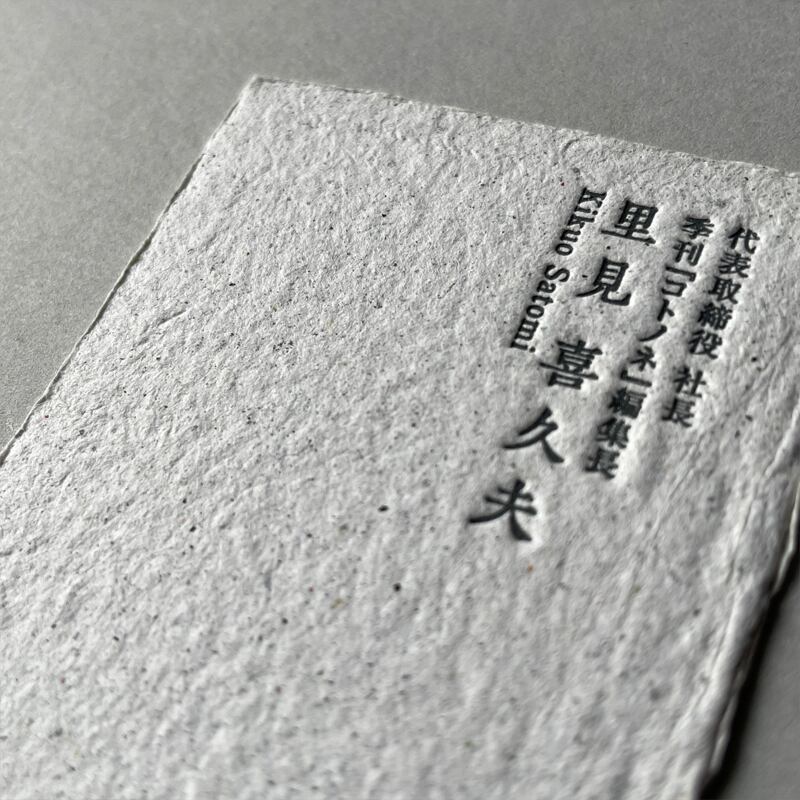 代表取締役 社長
季刊『コトノネ』編集長
里見 喜久夫
Kikuo Satomi